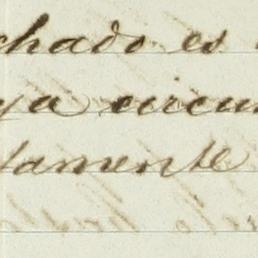 chado es
ya circun
tamente